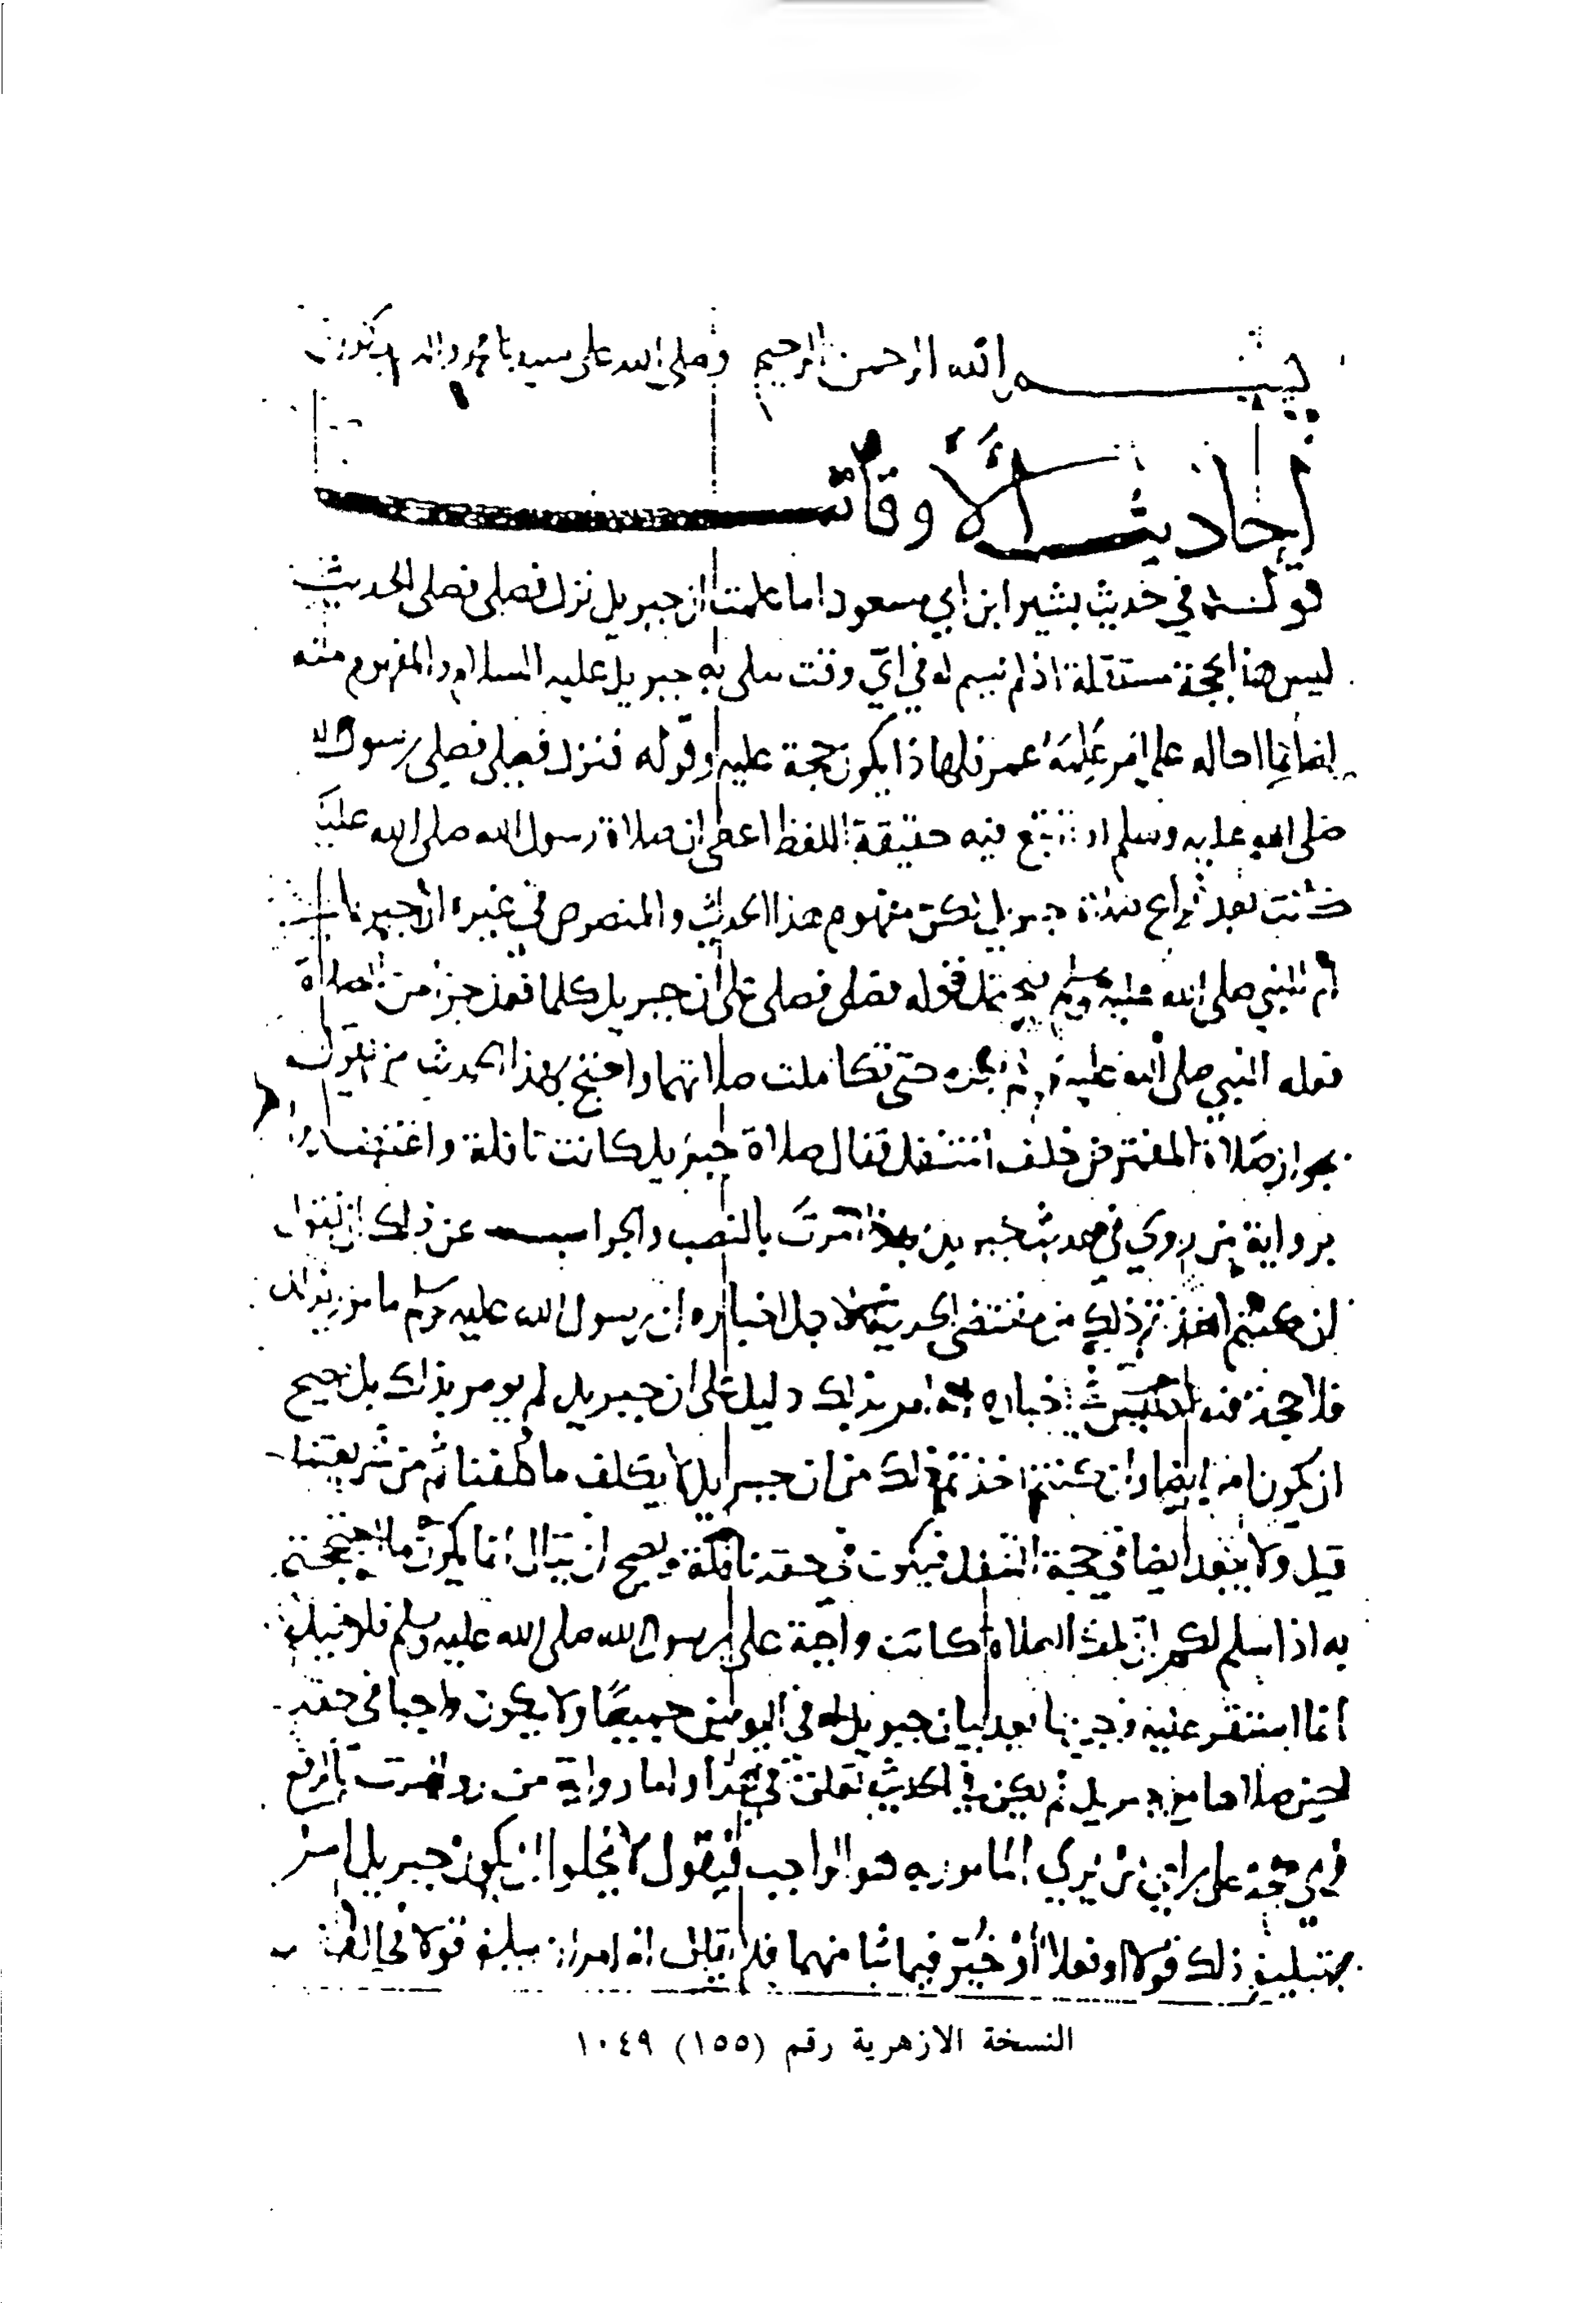 بسم الله الرحمن الرحيم وصلى الله على سيدنا محمد واله
احاديث الأوقات
قوله في حديث بشير ابن ابي مسعود اما علمت ان جبريل نزل فصلى فصلى الحديث
ليس هذا بحجة مستقلة اذ لم يسم له في اي وقت صلى به جبريل عليه السلام والمفهوم منه
انما احاله على امر علمه عمر فلهاذا يكون حجة عليه وقوله فنزل فصلى فصلى رسول الله
صلى الله عليه وسلم اذ اتبع فيه حقيقة اللفظ اعطى ان صلاة رسول الله صلى الله عليه
كانت بعد فراغ صلاة جبريل لكن مفهوم هذا الحديث والمنصوص في غيره ان جبريل
ام النبي صلى الله عليه وسلم فيحمل قوله فصلى فصلى على ان جبريل كلما فعل جزا من الصلاة
فعله النبي صلى الله عليه وسلم بعده حتى تكاملت صلاتهما واحتج بهذا الحديث من يقول
بجواز صلاة المفترض خلف المتنفل فقال صلاة جبريل كانت نافلة واعتضد
برواية من روي في حديث جبريل بهذا امرت بالنصب والجواب عن ذلك ان نقول
ان كنتم اخذتم ذلك من مقتضى الحديث لاجل اخباره ان رسول الله عليه وسلم مامور بذلك
فلا حجة فيه اذ ليس اخباره انه امر بذلك دليل على ان جبريل لم يومر بذلك بل يصح
ان يكون امر ايضا وان كنتم اخذتم ذلك من ان جبريل لا يكلف ما كلفنا نحن من شريعتنا
قيل ولا يبعد ايضا في حجة التنفل فيكون في حقه نافلة ويصح ان يقال انما يكون ما احتججتم
به اذا سلم لكم ان تلك الصلاة كانت واجبة على رسول الله صلى الله عليه وسلم فلا
انما استقر عليه وجوبها بعد بيان جبريل له في اليومين جميعا ولا يكون واجبا في حقه
لحين صلاها مع جبريل لم يكن في الحديث تعلق في هذا واما رواية من روا امرت بالرفع
فهي حجة على راي من يري المامور به هو الواجب فيقول لا يخلوا ان يكون جبريل امر
بتبليغ ذلك قولا او فعلا او خير فيما شا منهما فلم يقل انه امر ان يبلغ قولا
النسخة الازهرية رقم (١٥٥) ١٠٤٩